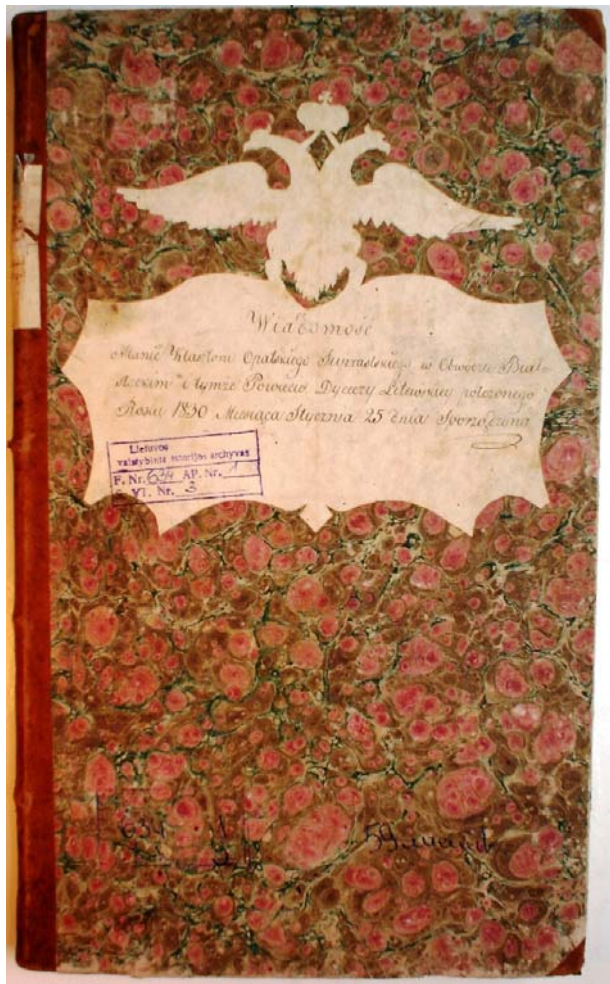 Wiadomość
Stanie Klasztoru Opatskiego Suprasl­skiego w Obwodzie Biało-
stockim i tymże Powiecie Dyecezy Litewskiey położonego
Roku 1830 Miesiąca Stycznia 25 dnia Sporządzona
Lietuvos
valstybinis istorijos archyvas
F. Nr. 634 AP. Nr. 1
VI. Nr. 3
634 1
3
59